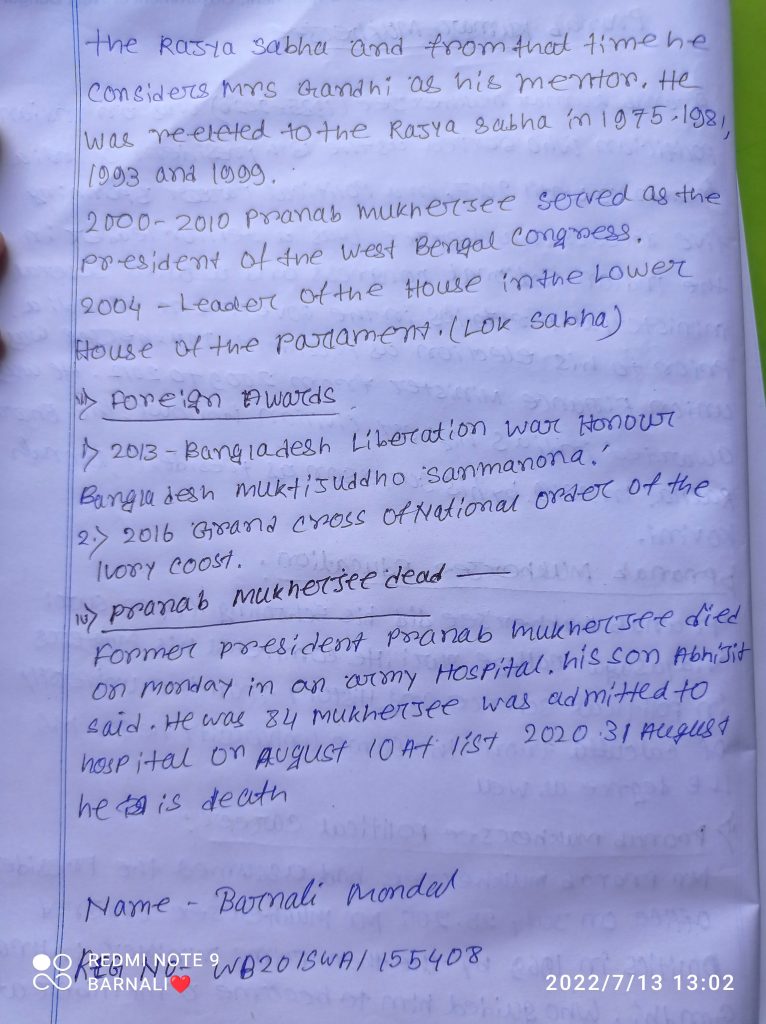 the Rajya Sabha and from that time he
considers Mrs Gandhi as his mentor. He
was reeleted to the Rajya Sabha in 1975-1981,
1993 and 1999.
2000-2010 Pranab Mukherjee served as the
president of the West Bengal Congress.
2004 - Leader of the House in the Lower
House of the Parlament. (Lok Sabha)
Foreign Awards
1) 2013 - Bangladesh Liberation War Honour
Bangladesh Muktijuddho Sanmanona.
2.) 2016 Grand Cross of National Order of the
Ivory Coost.
iv) Pranab Mukherjee dead —
Former president Pranab Mukherjee died
on Monday in an army Hospital. his son Abhijit
said. He was 84 Mukherjee was admitted to
hospital on August 10 At list 2020 31 August
he is death
Name - Barnali Mondal
REG No- WB201SWA/155408
REDMI NOTE 9
BARNALI❤️
2022/7/13 13:02